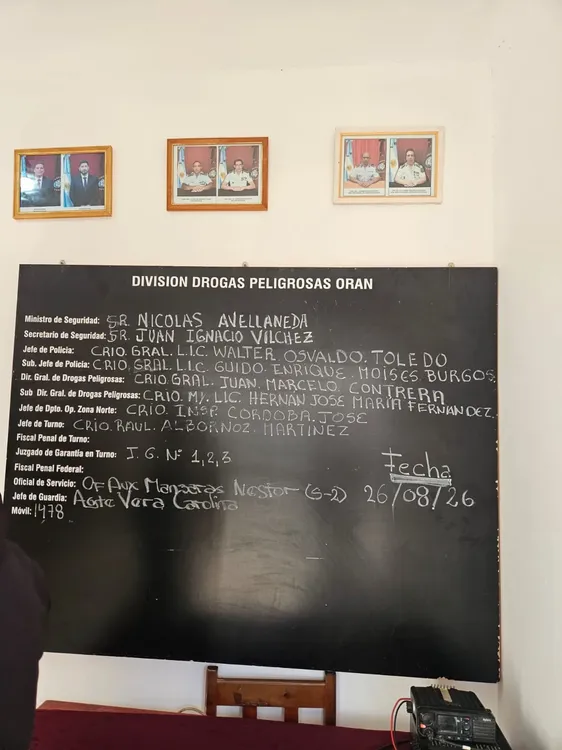 DIVISION DROGAS PELIGROSAS ORAN
Ministro de Seguridad: SR. NICOLAS AVELLANEDA
Secretario de Seguridad: SR. JUAN IGNACIO VILCHEZ
Jefe de Policía: CRIO. GRAL. LIC. WALTER OSVALDO. TOLEDO
Sub. Jefe de Policía: CRIO. GRAL. LIC. GUIDO. ENRIQUE. MOISES BURGOS
Dir. Gral. de Drogas Peligrosas: CRIO GRAL. JUAN. MARCELO. CONTRERA
Sub Dir. Gral. de Drogas Peligrosas: CRIO. My. LIC. HERNAN JOSE MARÍA FERNANDEZ.
Jefe de Dpto. Op. Zona Norte: CRIO. INSP. CORDOBA. JOSE
Jefe de Turno: CRIO. RAUL. ALBORNOZ. MARTINEZ
Fiscal Penal de Turno:
Juzgado de Garantía en Turno: I. G. Nº 1,2,3
Fiscal Penal Federal:
Fecha
Oficial de Servicio: Of Aux Nestor (S-2) 26/08/26
Jefe de Guardia: Agte Vera Carolina
Móvil: 1478